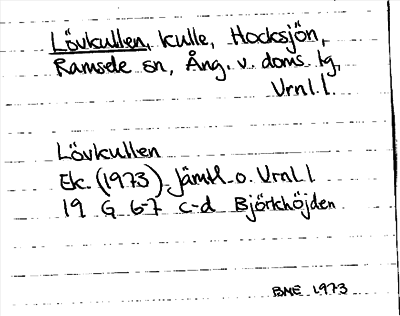 Lövkullen, kulle, Hocksjön,
Ramsele sn, Ång. v. doms. lg,
Vrnl. l.
Lövkullen
Ek. (1973). Jämtl. o. Vrnl. l
19 G 6-7 c-d Björkhöjden
BME 1973